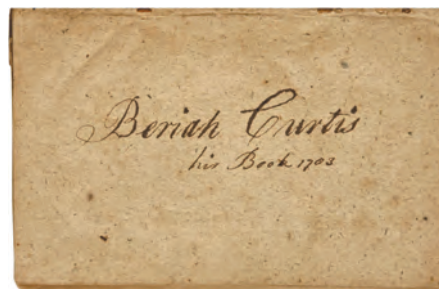 Beriah Curtis
his Book 1703